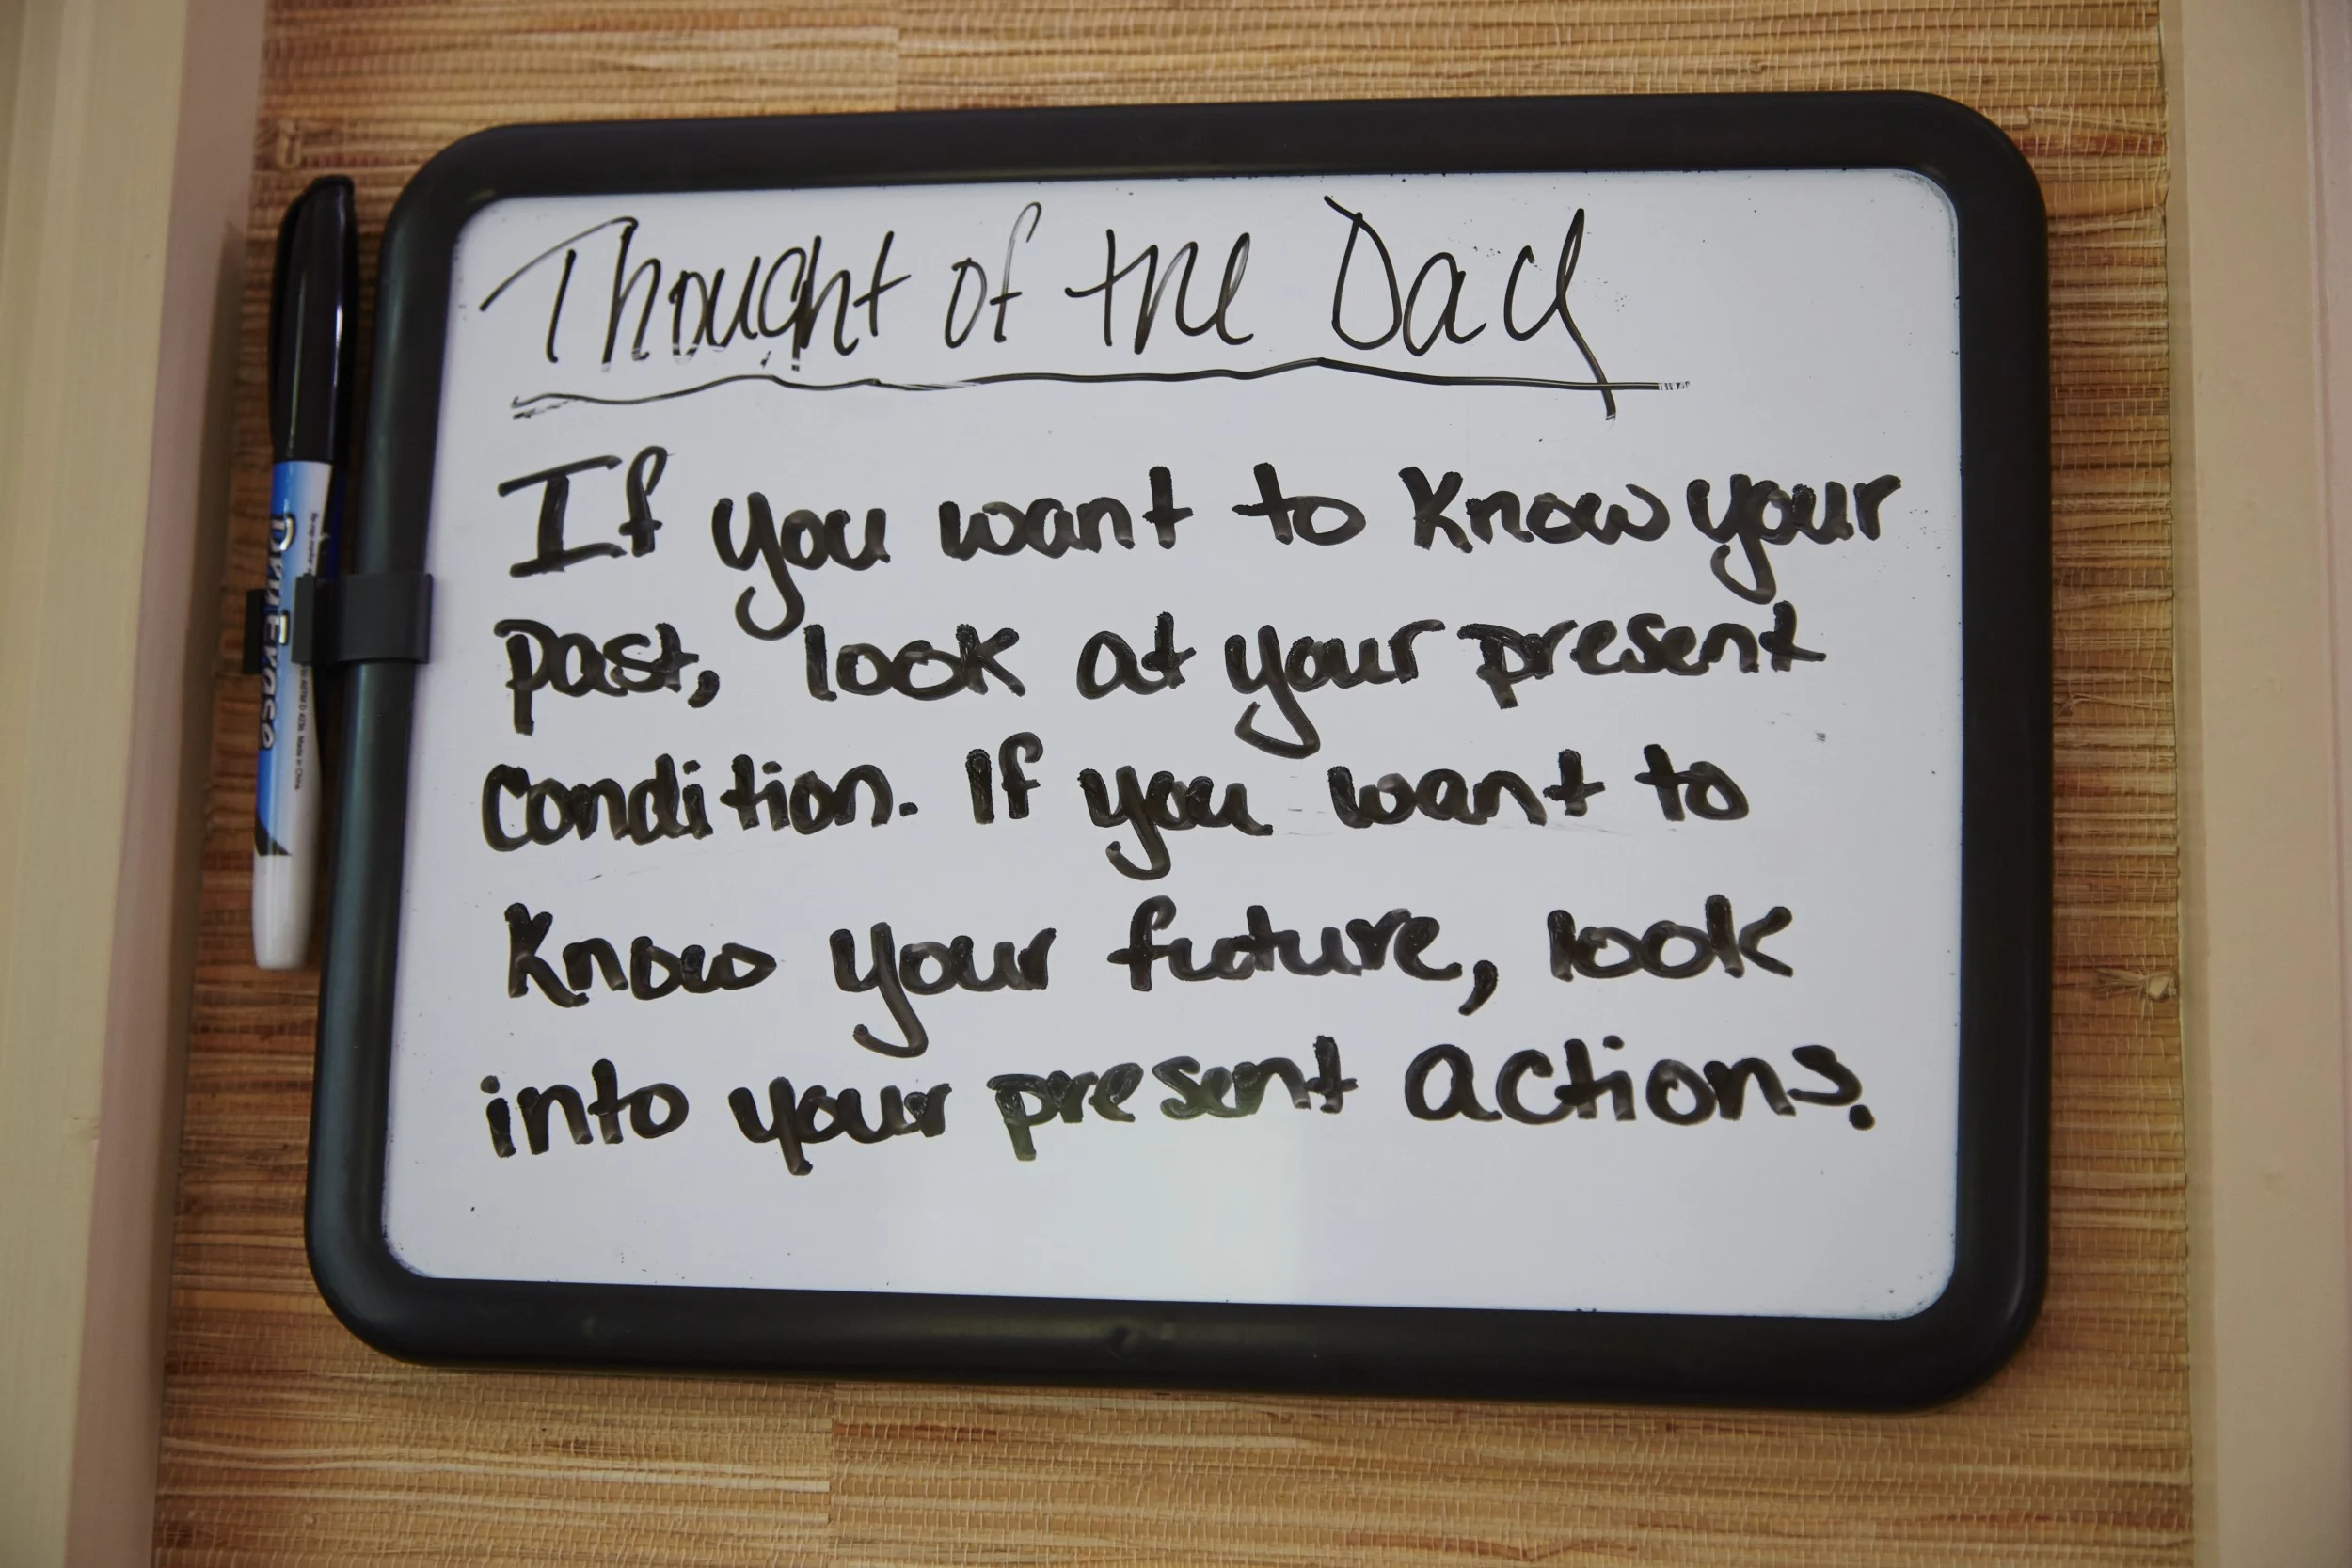 Thought of the Day
If you want to know your
past, look at your present
condition. If you want to
know your future, look
into your present actions.
Dry Erase
Made in China